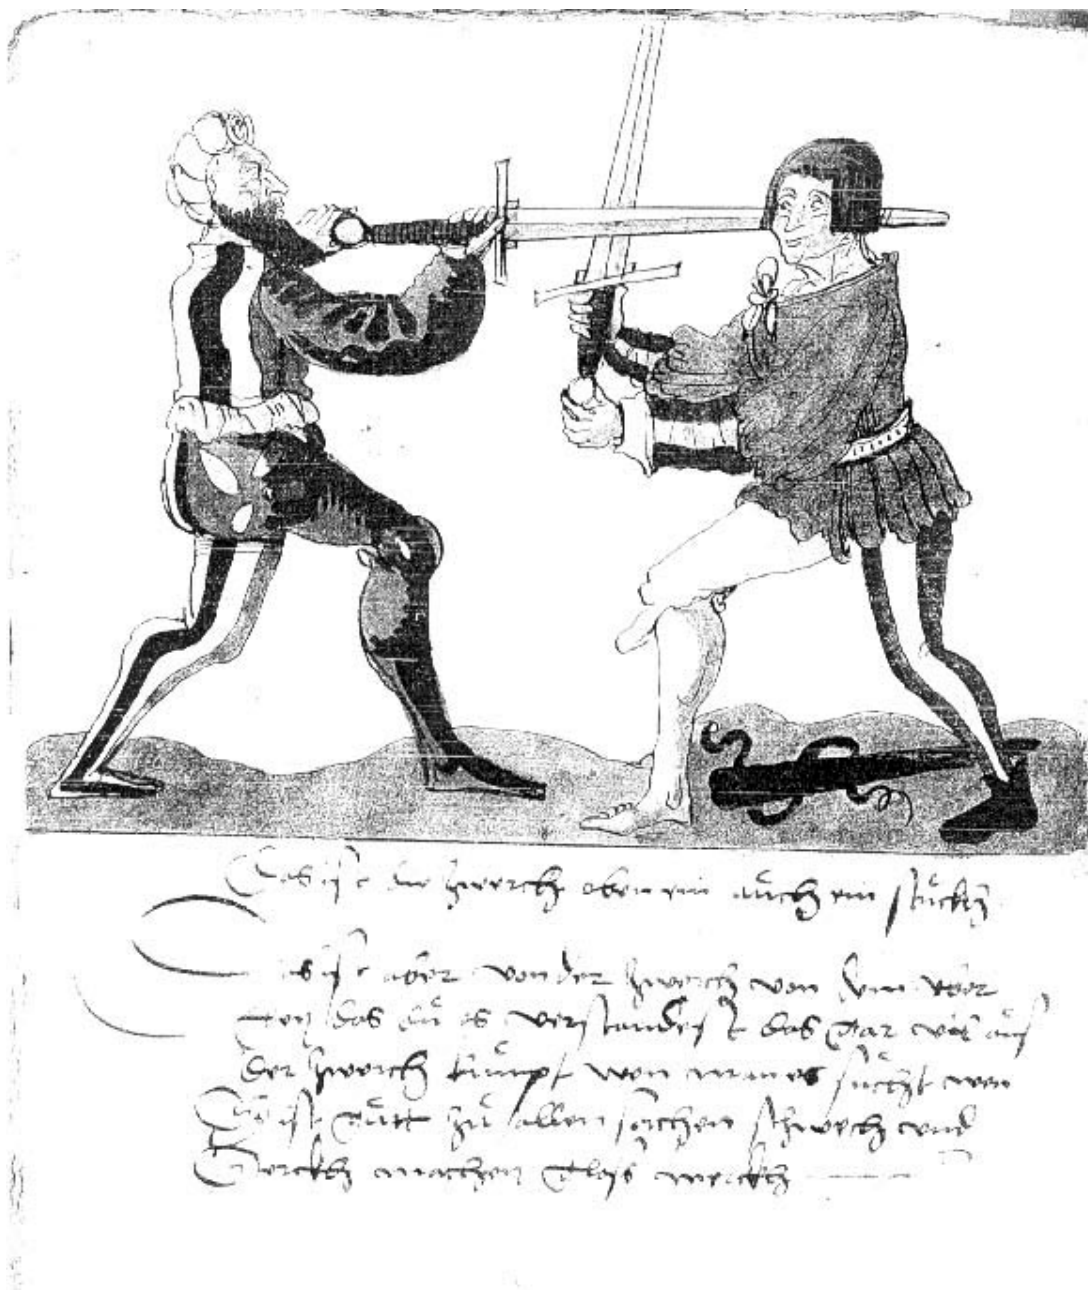 Das ist die zwerch oben ein aůch ein stůckh
Das ist aber von der zwerch von dem ober
das dů es verstandest das gar vil aůs
der zwerch kůmpt wen man es sůcht wen
Sÿ ist gůtt zů allen sachen schwech vnd
sterckh machen merckh